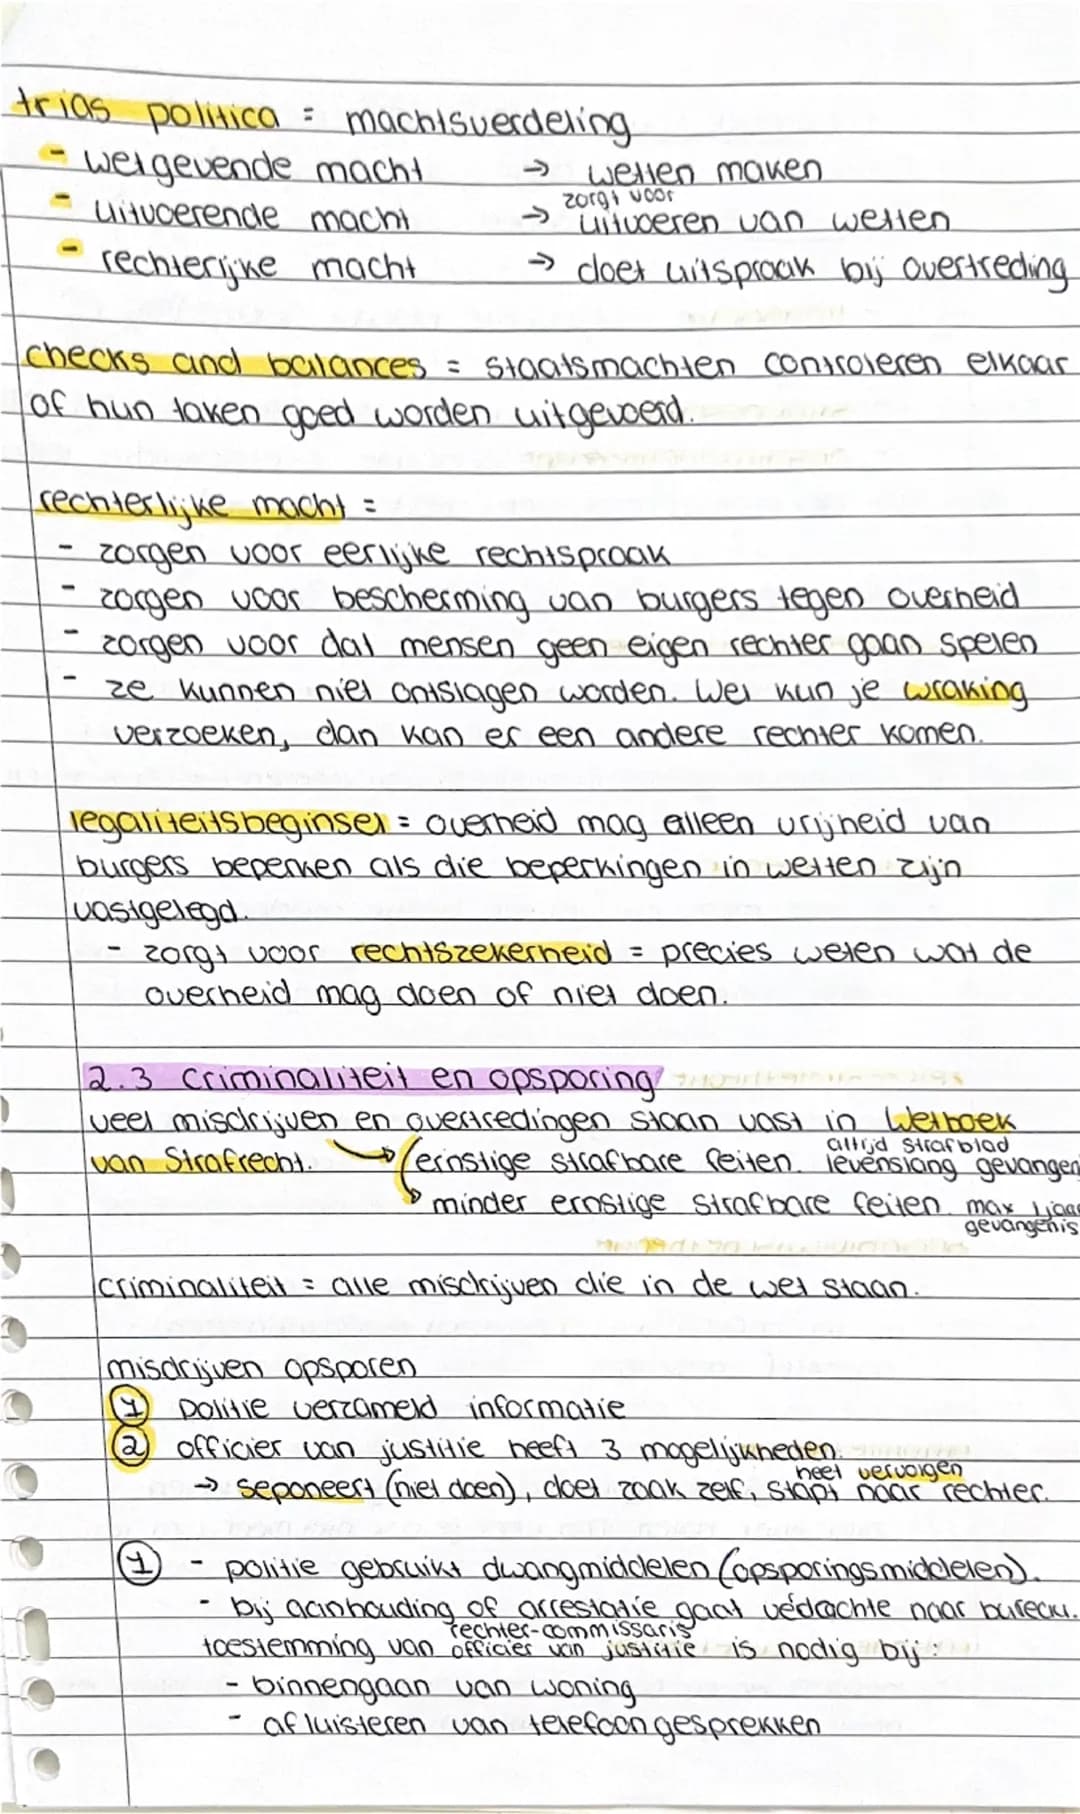 trias politica = machtsverdeling
- wetgevende macht → wetten maken
- uitvoerende macht → zorgt voor uitvoeren van wetten
- rechterlijke macht → doet uitspraak bij overtreding
checks and balances = staatsmachten controleren elkaar
of hun taken goed worden uitgevoerd.
rechterlijke macht =
- zorgen voor eerlijke rechtspraak
- zorgen voor bescherming van burgers tegen overheid
- zorgen voor dat mensen geen eigen rechter gaan spelen
- ze kunnen niet ontslagen worden. Wel kun je wraking
verzoeken, dan kan er een andere rechter komen.
legaliteitsbeginsel = overheid mag alleen vrijheid van
burgers beperken als die beperkingen in wetten zijn
vastgelegd.
- zorgt voor rechtszekerheid = precies weten wat de
overheid mag doen of niet doen.
2.3 Criminaliteit en opsporing
veel misdrijven en overtredingen staan vast in Wetboek
van Strafrecht. → ernstige strafbare feiten. altijd strafblad levenslang gevangen
minder ernstige strafbare feiten. max 1 jaar
gevangenis
criminaliteit = alle misdrijven die in de wet staan.
misdrijven opsporen
1 politie verzameld informatie
2 officier van justitie heeft 3 mogelijkheden.
→ seponeert (niet doen), doet zaak zelf, stapt naar rechter.
heet vervolgen
1 - politie gebruikt dwangmiddelen (opsporingsmiddelen).
- bij aanhouding of arrestatie gaat verdachte naar bureau.
rechter-commissaris
toestemming van officier van justitie is nodig bij:
- binnengaan van woning
- afluisteren van telefoongesprekken